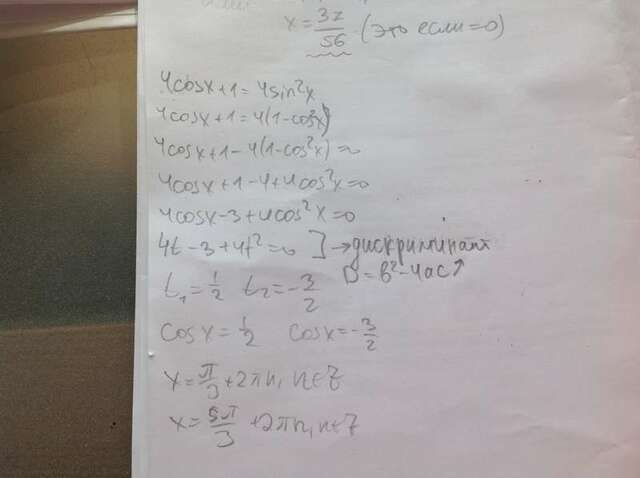 x = 37/56 (это если = 0)
4cosx+1=4sin²x
4cosx+1=4(1-cos²x)
4cosx+1-4(1-cos²x)=0
4cosx+1-4+4cos²x=0
4cosx-3+4cos²x=0
4t-3+4t²=0 ] → дискриминант
D=b²-4ac ↑
t₁=1/2 t₂=-3/2
cosx=1/2 cosx=-3/2
x=π/3+2πn, n∈Z
x=5π/3+2πn, n∈Z